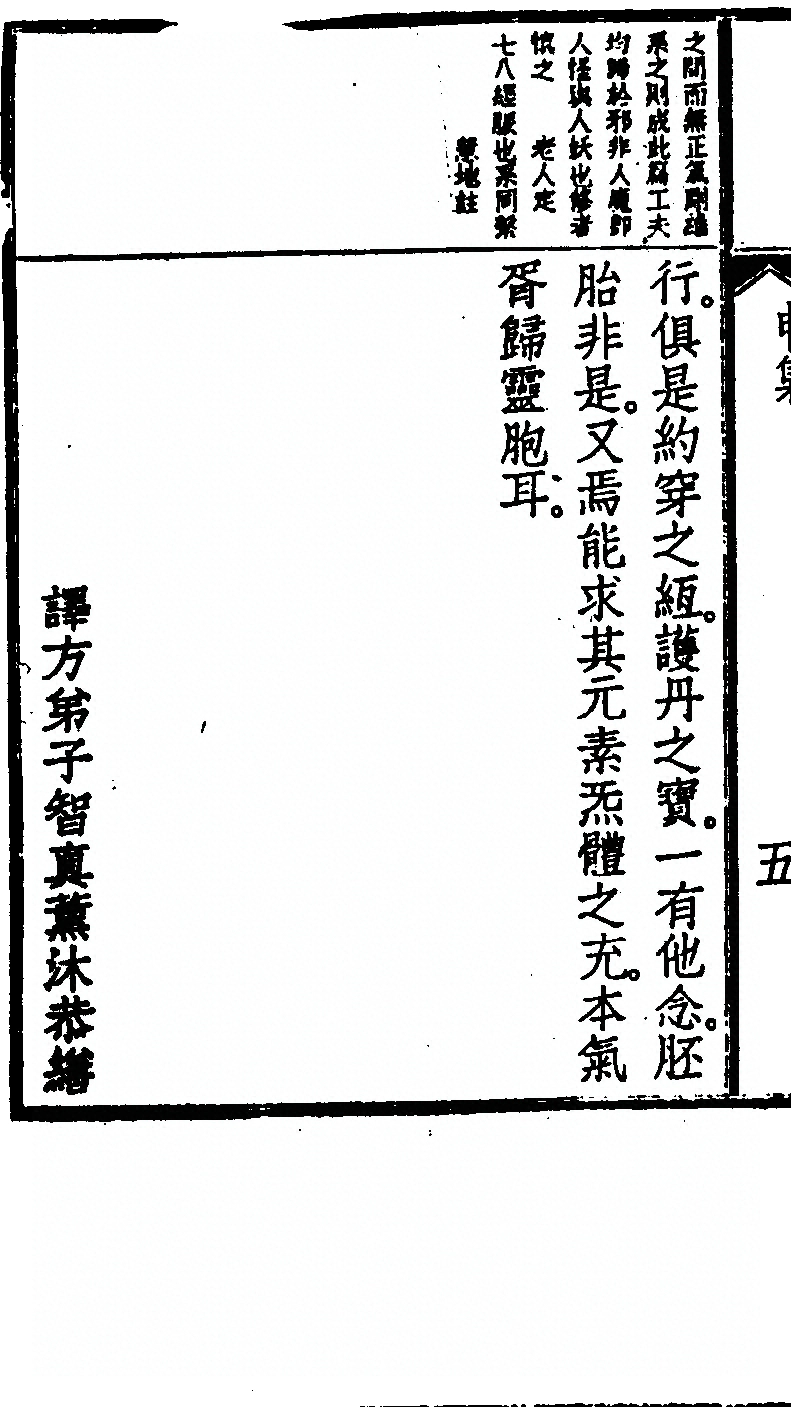 五
之間而無正氣剛雄
系之則成此爲工夫
均歸於邪非人魔即
人怪與人妖也修者
慎之　老人定
七八經脹也系同繫
慧地註
行。俱是約穿之絙。護丹之寶。一有他念。胚
胎非是。又焉能求其元素炁體之充。本氣
胥歸靈胞耳。
譯方弟子智真薰沐恭繕